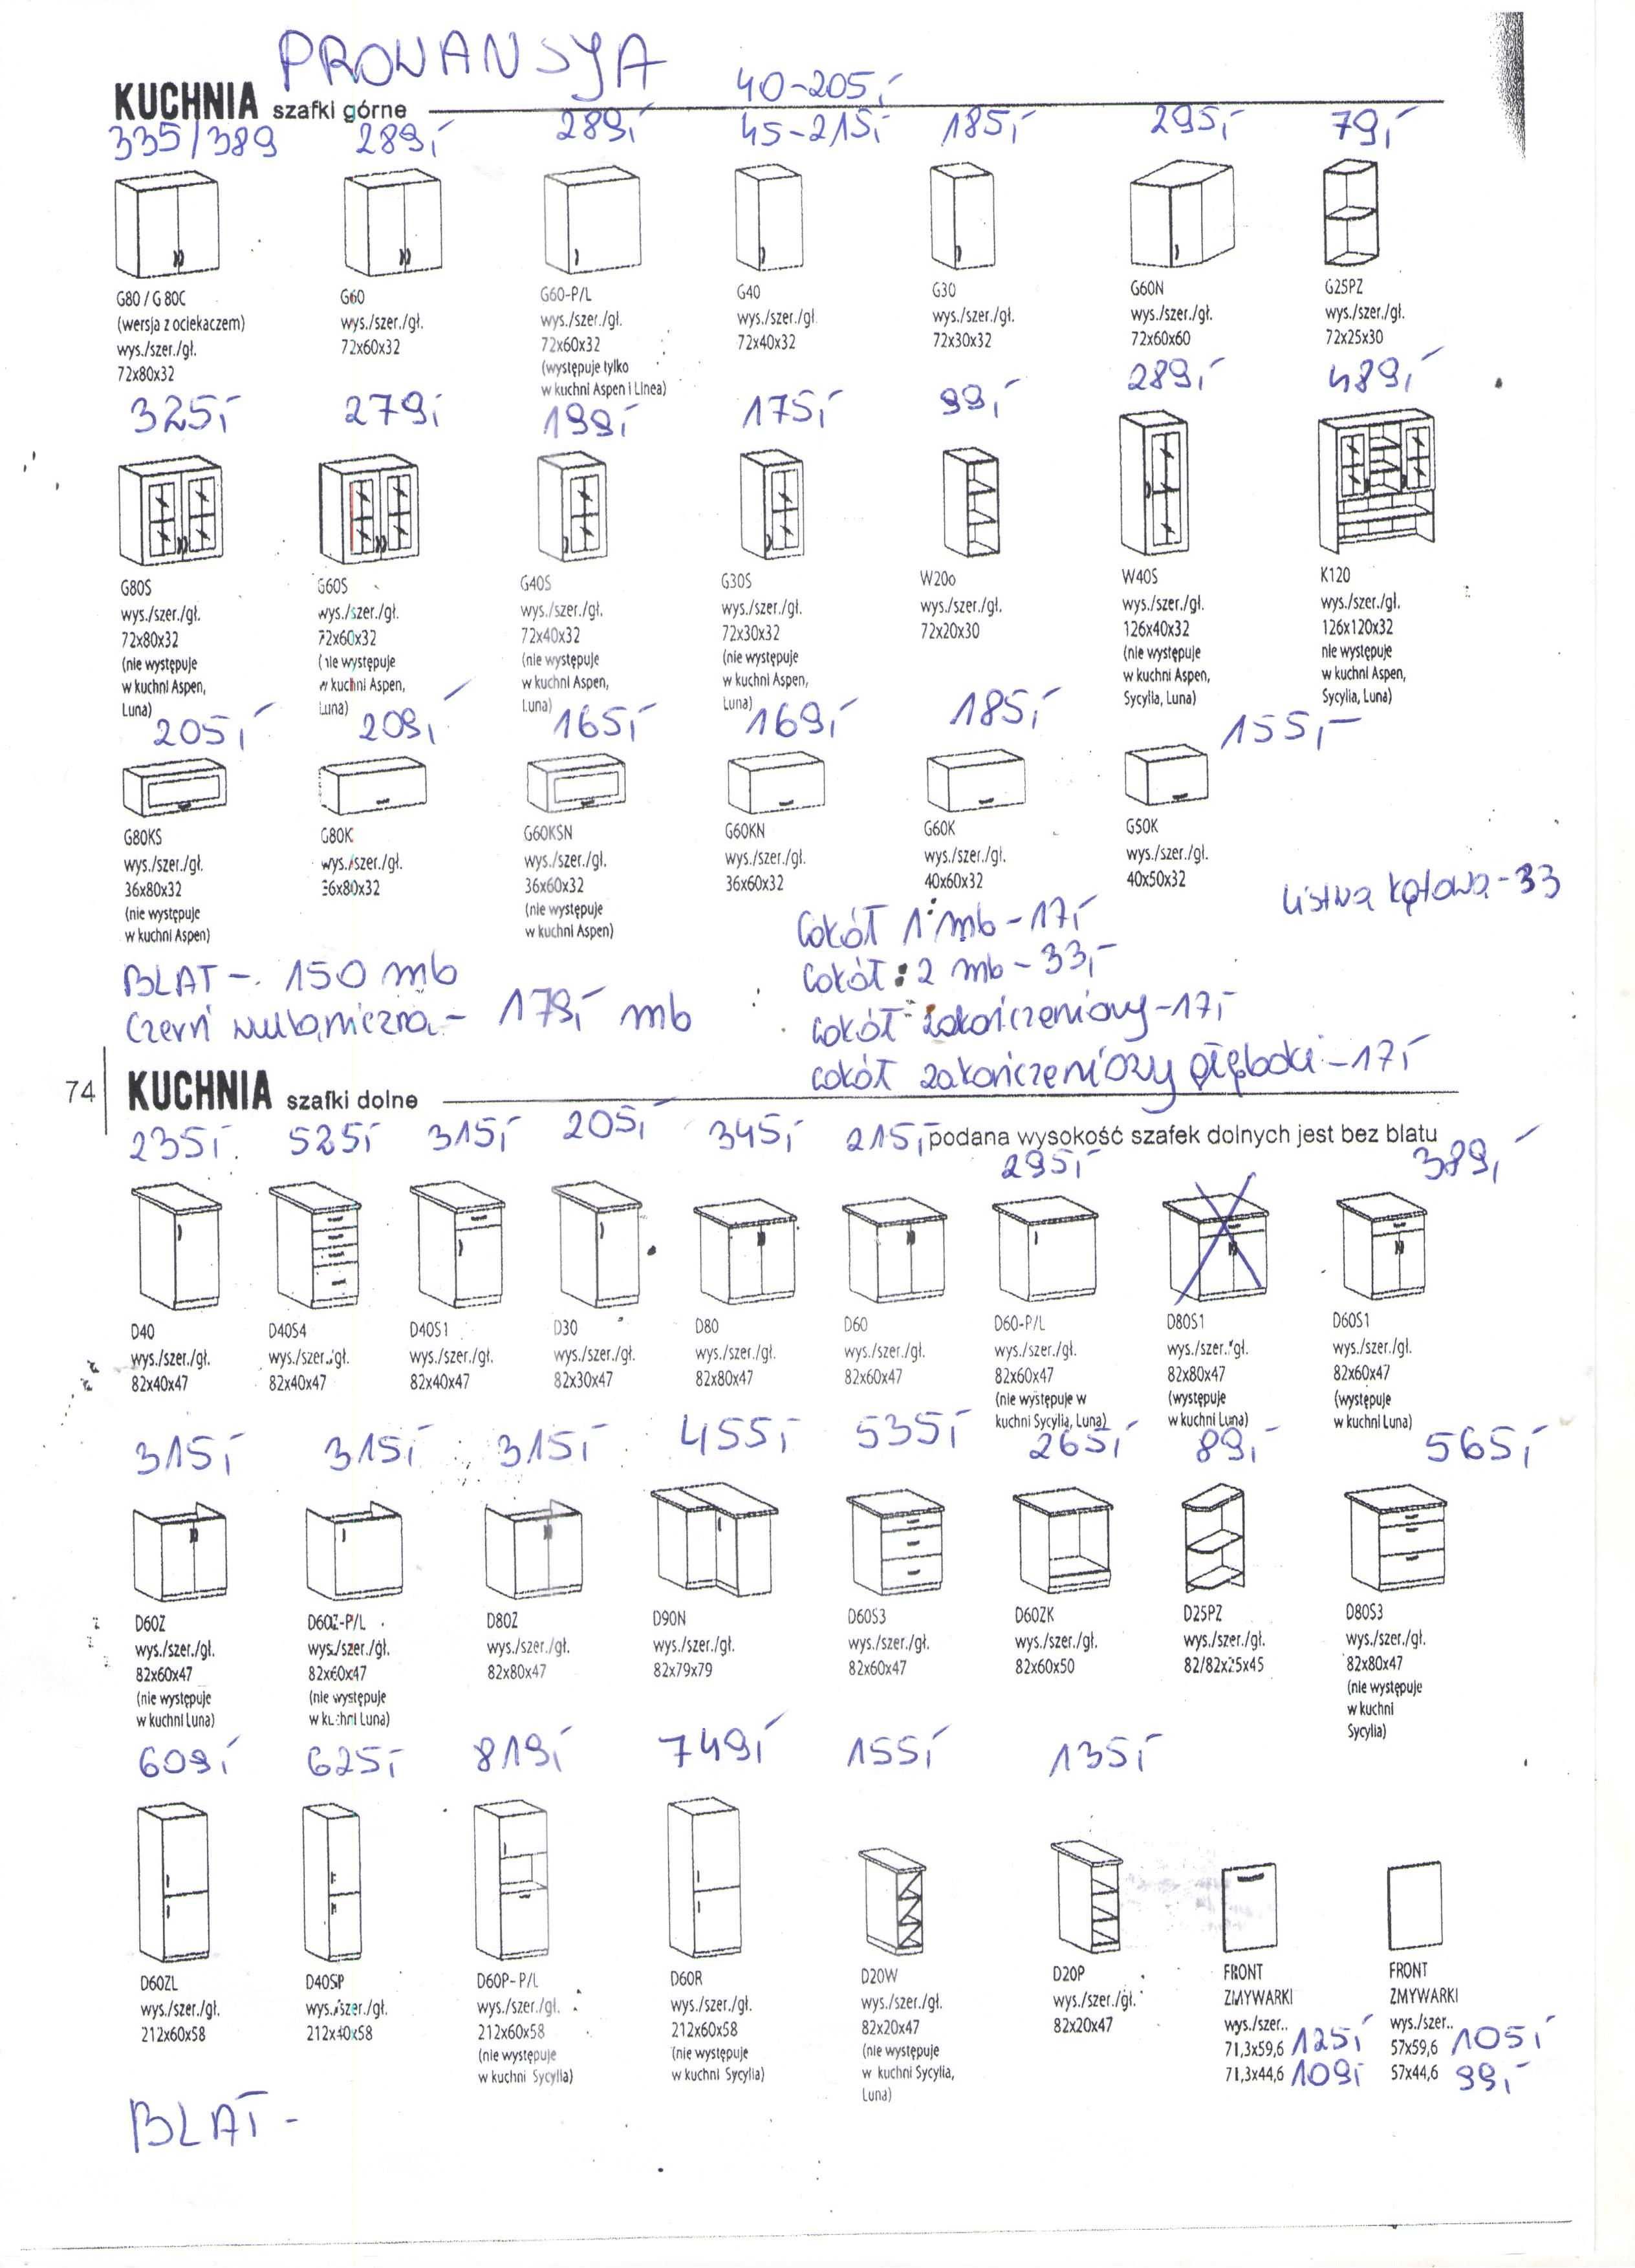 PROWANSJA
KUCHNIA szafki górne
40-205,-
335/389 289,- 289,- 45-215,- 185,- 295,- 79,-
G80 / G 80C
(wersja z ociekaczem)
wys./szer./gł.
72x80x32
G60
wys./szer./gł.
72x60x32
G60-P/L
wys./szer./gł.
72x60x32
(występuje tylko
w kuchni Aspen i Linea)
G40
wys./szer./gł
72x40x32
G30
wys./szer./gł.
72x30x32
G60N
wys./szer./gł.
72x60x60
G25PZ
wys./szer./gł.
72x25x30
325,- 279,- 199,- 175,- 99,- 289,- 489,-
G80S
wys./szer./gł.
72x80x32
(nie występuje
w kuchni Aspen,
Luna)
G60S
wys./szer./gł.
72x60x32
(nie występuje
w kuchni Aspen,
Luna)
G40S
wys./szer./gł.
72x40x32
(nie występuje
w kuchni Aspen,
Luna)
G30S
wys./szer./gł.
72x30x32
(nie występuje
w kuchni Aspen,
Luna)
W20o
wys./szer./gł.
72x20x30
W40S
wys./szer./gł.
126x40x32
(nie występuje
w kuchni Aspen,
Sycylia, Luna)
K120
wys./szer./gł.
126x120x32
nie występuje
w kuchni Aspen,
Sycylia, Luna)
205,- 209,- 165,- 169,- 185,- 155,-
G80KS
wys./szer./gł.
36x80x32
(nie występuje
w kuchni Aspen)
G80K
wys./szer./gł.
36x80x32
G60KSN
wys./szer./gł.
36x60x32
(nie występuje
w kuchni Aspen)
G60KN
wys./szer./gł.
36x60x32
G60K
wys./szer./gł.
40x60x32
G50K
wys./szer./gł.
40x50x32
Listwa kątowa - 33
Cokół 1 mb - 17,-
Cokół: 2 mb - 33,-
cokół zakończeniowy - 17,-
cokół zakończeniowy głęboki - 17,-
BLAT - 150 mb
Czerń wulkaniczna - 179,- mb
74
KUCHNIA szafki dolne
podana wysokość szafek dolnych jest bez blatu
235,- 525,- 315,- 205,- 345,- 215,- 295,- 389,-
D40
wys./szer./gł.
82x40x47
D40S4
wys./szer./gł.
82x40x47
D40S1
wys./szer./gł.
82x40x47
D30
wys./szer./gł.
82x30x47
D80
wys./szer./gł.
82x80x47
D60
wys./szer./gł.
82x60x47
D60-P/L
wys./szer./gł.
82x60x47
(nie występuje w
kuchni Sycylia, Luna)
D80S1
wys./szer./gł.
82x80x47
(występuje
w kuchni Luna)
D60S1
wys./szer./gł.
82x60x47
(występuje
w kuchni Luna)
315,- 315,- 315,- 455,- 535,- 265,- 89,- 565,-
D60Z
wys./szer./gł.
82x60x47
(nie występuje
w kuchni Luna)
D60Z-P/L
wys./szer./gł.
82x60x47
(nie występuje
w kuchni Luna)
D80Z
wys./szer./gł.
82x80x47
D90N
wys./szer./gł.
82x79x79
D60S3
wys./szer./gł.
82x60x47
D60ZK
wys./szer./gł.
82x60x50
D25PZ
wys./szer./gł.
82/82x25x45
D80S3
wys./szer./gł.
82x80x47
(nie występuje
w kuchni
Sycylia)
609,- 625,- 819,- 749,- 155,- 135,-
D60ZL
wys./szer./gł.
212x60x58
D40SP
wys./szer./gł.
212x40x58
D60P-P/L
wys./szer./gł.
212x60x58
(nie występuje
w kuchni Sycylia)
D60R
wys./szer./gł.
212x60x58
(nie występuje
w kuchni Sycylia)
D20W
wys./szer./gł.
82x20x47
(nie występuje
w kuchni Sycylia,
Luna)
D20P
wys./szer./gł.
82x20x47
FRONT
ZMYWARKI
wys./szer..
71,3x59,6 125,-
71,3x44,6 109,-
FRONT
ZMYWARKI
wys./szer..
57x59,6 105,-
57x44,6 99,-
BLAT -